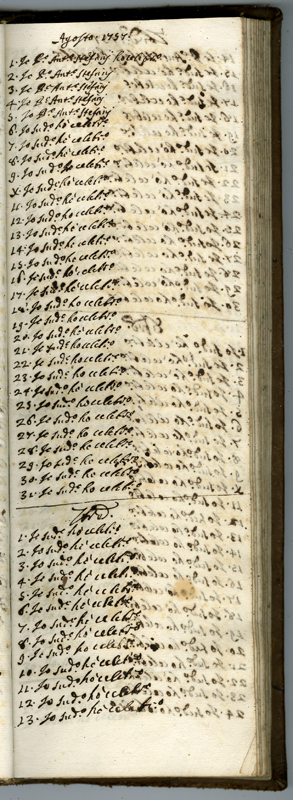 Agosto 1757
1. Io D. Ant.º Stefanij ho celebr.º
2. Io D. Ant.º Stefanij
3. Io D. Ant.º Stefanij
4. Io D. Ant.º Stefanij
5. Io D. Ant.º Stefanij
6. Io sud.º ho celebr.º
7. Io sud.º ho celebr.º
8. Io sud.º ho celebr.º
9. Io sud.º ho celebr.º
X. Io sud.º ho celebr.º
11. Io sud.º ho celebr.º
12. Io sud.º ho celebr.º
13. Io sud.º ho celebr.º
14. Io sud.º ho celebr.º
15. Io sud.º ho celebr.º
16. Io sud.º ho celebr.º
17. Io sud.º ho celebr.º
18. Io sud.º ho celebr.º
19. Io sud.º ho celebr.º
20. Io sud.º ho celebr.º
21. Io sud.º ho celebr.º
22. Io sud.º ho celebr.º
23. Io sud.º ho celebr.º
24. Io sud.º ho celebr.º
25. Io sud.º ho celebr.º
26. Io sud.º ho celebr.º
27. Io sud.º ho celebr.º
28. Io sud.º ho celebr.º
29. Io sud.º ho celebr.º
30. Io sud.º ho celebr.º
31. Io sud.º ho celebr.º
1. Io sud.º ho celebr.º
2. Io sud.º ho celebr.º
3. Io sud.º ho celebr.º
4. Io sud.º ho celebr.º
5. Io sud.º ho celebr.º
6. Io sud.º ho celebr.º
7. Io sud.º ho celebr.º
8. Io sud.º ho celebr.º
9. Io sud.º ho celebr.º
10. Io sud.º ho celebr.º
11. Io sud.º ho celebr.º
12. Io sud.º ho celebr.º
13. Io sud.º ho celebr.º